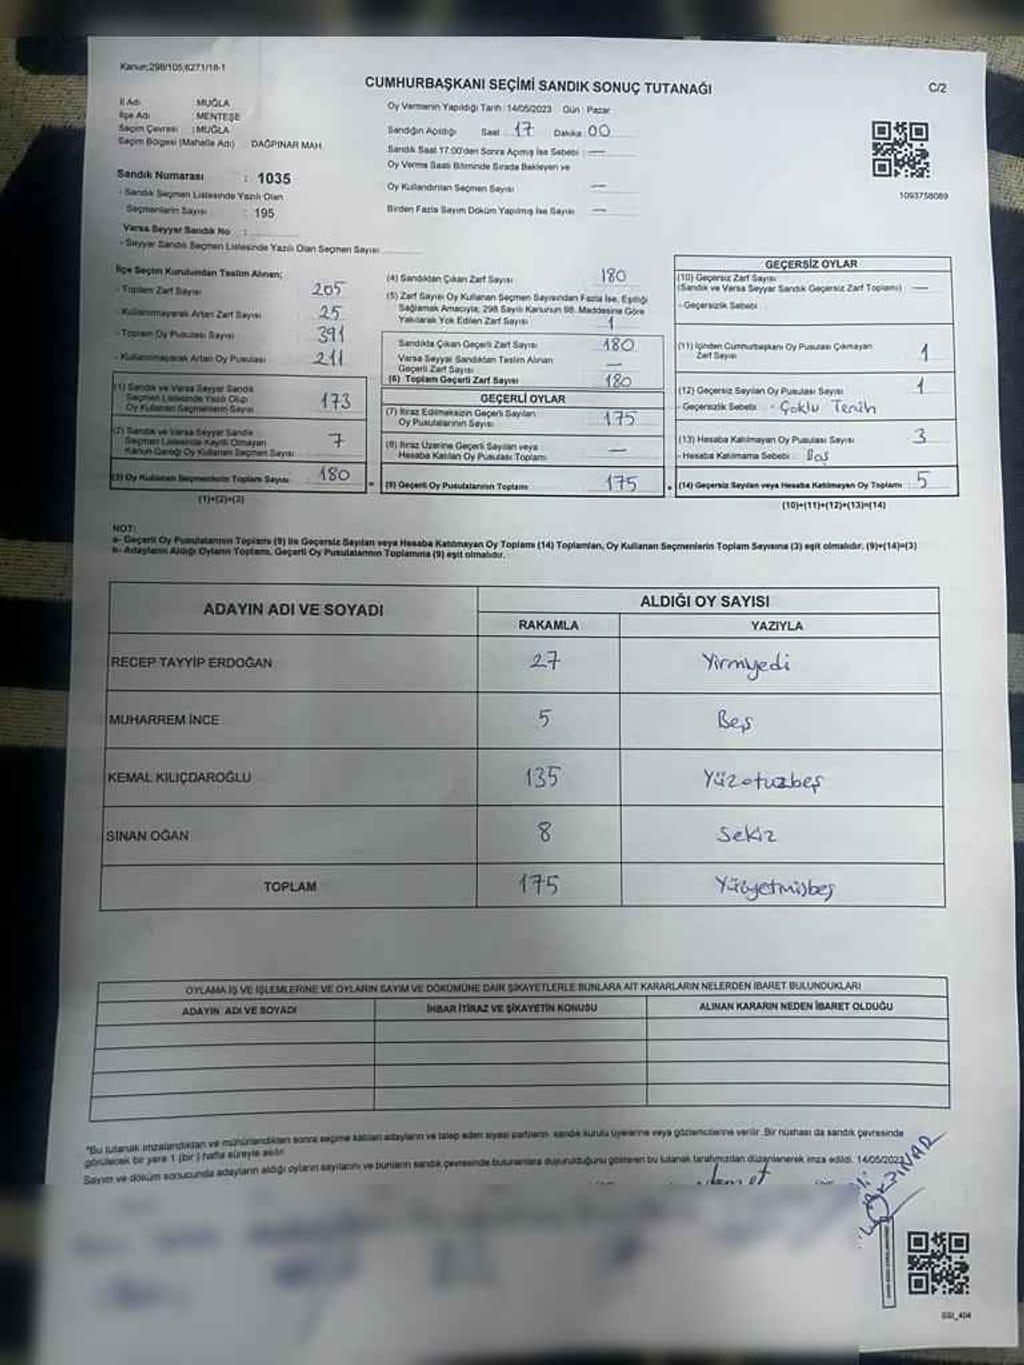 Kanun:298/105,6271/18-1
CUMHURBAŞKANI SEÇİMİ SANDIK SONUÇ TUTANAĞI
C/2
İl Adı MUĞLA
İlçe Adı MENTEŞE
Seçim Çevresi : MUĞLA
Seçim Bölgesi (Mahalle Adı) : DAĞPINAR MAH.
Sandık Numarası : 1035
- Sandık Seçmen Listesinde Yazılı Olan
Seçmenlerin Sayısı : 195
Varsa Seyyar Sandık No :
- Seyyar Sandık Seçmen Listesinde Yazılı Olan Seçmen Sayısı
Oy Vermenin Yapıldığı Tarih : 14/05/2023 Gün : Pazar
Sandığın Açıldığı Saat 17 Dakika : 00
Sandık Saat 17:00'den Sonra Açılmış İse Sebebi : —
Oy Verme Saati Bitiminde Sırada Bekleyen ve
Oy Kullandırılan Seçmen Sayısı —
Birden Fazla Sayım Döküm Yapılmış İse Sayısı —
1093758089
İlçe Seçim Kurulundan Teslim Alınan;
- Toplam Zarf Sayısı 205
- Kullanılmayarak Artan Zarf Sayısı 25
- Toplam Oy Pusulası Sayısı 391
- Kullanılmayarak Artan Oy Pusulası 211
(1) Sandık ve Varsa Seyyar Sandık
Seçmen Listesinde Yazılı Olup
Oy Kullanan Seçmenlerin Sayısı 173
(2) Sandık ve Varsa Seyyar Sandık
Seçmen Listesinde Kayıtlı Olmayan
Kanun Gereği Oy Kullanan Seçmen Sayısı 7
(3) Oy Kullanan Seçmenlerin Toplam Sayısı 180
(1)+(2)=(3)
(4) Sandıktan Çıkan Zarf Sayısı 180
(5) Zarf Sayısı Oy Kullanan Seçmen Sayısından Fazla İse, Eşitliği
Sağlamak Amacıyla, 298 Sayılı Kanunun 98. Maddesine Göre
Yakılarak Yok Edilen Zarf Sayısı 1
Sandıkta Çıkan Geçerli Zarf Sayısı 180
Varsa Seyyar Sandıktan Teslim Alınan
Geçerli Zarf Sayısı —
(6) Toplam Geçerli Zarf Sayısı 180
GEÇERLİ OYLAR
(7) İtiraz Edilmeksizin Geçerli Sayılan
Oy Pusulalarının Sayısı 175
(8) İtiraz Üzerine Geçerli Sayılan veya
Hesaba Katılan Oy Pusulası Toplamı —
= (9) Geçerli Oy Pusulalarının Toplamı 175
GEÇERSİZ OYLAR
(10) Geçersiz Zarf Sayısı
(Sandık ve Varsa Seyyar Sandık Geçersiz Zarf Toplamı) : —
- Geçersizlik Sebebi
(11) İçinden Cumhurbaşkanı Oy Pusulası Çıkmayan
Zarf Sayısı 1
(12) Geçersiz Sayılan Oy Pusulası Sayısı 1
- Geçersizlik Sebebi : Çoklu Tercih
(13) Hesaba Katılmayan Oy Pusulası Sayısı 3
- Hesaba Katılmama Sebebi : Boş
+ (14) Geçersiz Sayılan veya Hesaba Katılmayan Oy Toplamı : 5
(10)+(11)+(12)+(13)=(14)
NOT:
a- Geçerli Oy Pusulalarının Toplamı (9) ile Geçersiz Sayılan veya Hesaba Katılmayan Oy Toplamı (14) Toplamları, Oy Kullanan Seçmenlerin Toplam Sayısına (3) eşit olmalıdır. (9)+(14)=(3)
b- Adayların Aldığı Oyların Toplamı, Geçerli Oy Pusulalarının Toplamına (9) eşit olmalıdır.
ADAYIN ADI VE SOYADI
ALDIĞI OY SAYISI
RAKAMLA YAZIYLA
RECEP TAYYİP ERDOĞAN 27 Yirmiyedi
MUHARREM İNCE 5 Beş
KEMAL KILIÇDAROĞLU 135 Yüzotuzbeş
SİNAN OĞAN 8 Sekiz
TOPLAM 175 Yüzyetmişbeş
OYLAMA İŞ VE İŞLEMLERİNE VE OYLARIN SAYIM VE DÖKÜMÜNE DAİR ŞİKAYETLERLE BUNLARA AİT KARARLARIN NELERDEN İBARET BULUNDUKLARI
ADAYIN ADI VE SOYADI İHBAR İTİRAZ VE ŞİKAYETİN KONUSU ALINAN KARARIN NEDEN İBARET OLDUĞU
"Bu tutanak imzalandıktan ve mühürlendikten sonra seçime katılan adayların ve talep eden siyasi partilerin sandık kurulu üyelerine veya gözlemcilerine verilir. Bir nüshası da sandık çevresinde
görülecek bir yere 1 (bir) hafta süreyle asılır.
Sayım ve döküm sonucunda adayların aldığı oyların sayılarını ve bunların sandık çevresinde bulunanlara duyurulduğunu gösteren bu tutanak tarafımızdan düzenlenerek imza edildi. 14/05/2023
SSI_404